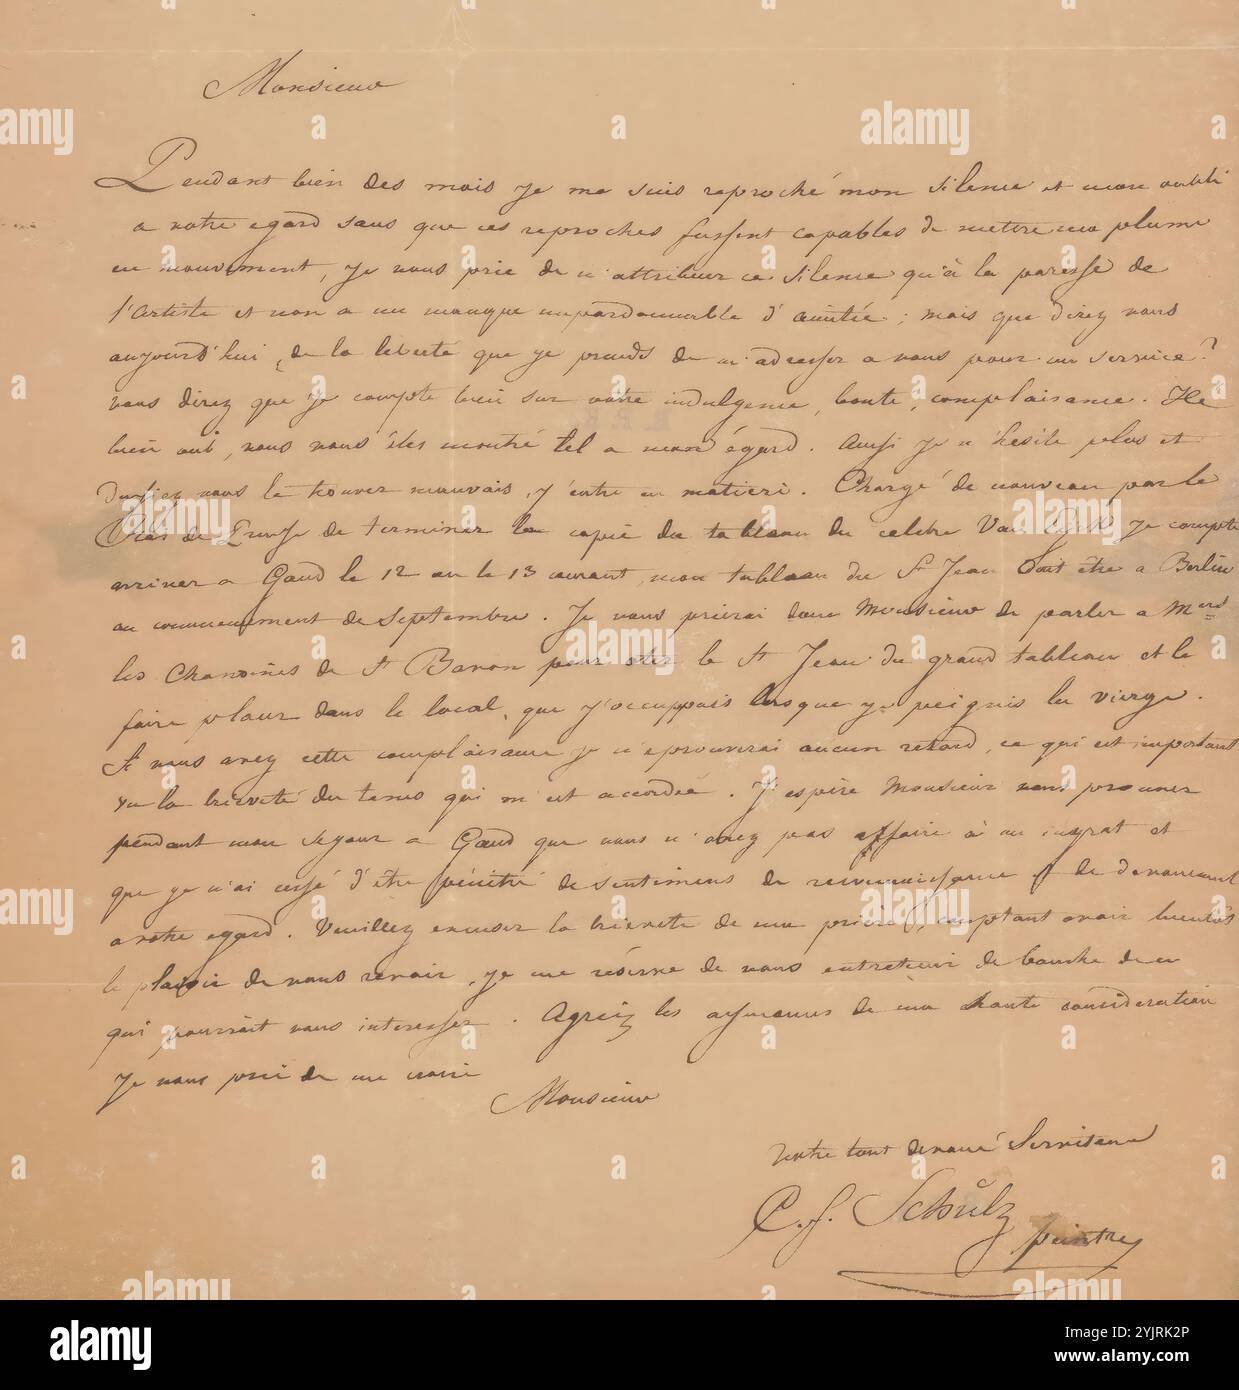 Monsieur
Pendant bien des mois je me suis reproché mon silence et mon oubli
a votre egard sans que ces reproches fussent capables de mettre ma plume
en mouvement, je vous prie de n'attribuer ce silence qu'à la paresse de
l'artiste et non a un manque impardonnable d'amitée ; mais que direz vous
aujourd'hui, de la liberté que je prends de m'adresser a vous pour un service?
vous direz que je compte bien sur votre indulgence, bonté, complaisance. Hé
bien oui, vous vous êtes montré tel a mon égard. Aussi je n'hesite plus et
dussiez vous le trouver mauvais, j'entre en matieri. Chargé de nouveau par le
Roi de Prusse de terminer la copie du tableau du celebre Van Eick je compte
arriver a Gand le 12 ou le 13 courant, mon tableau du St Jean doit être a Berlin
au commencement de Septembre. Je vous prierai donc Monsieur de parler a Mrs
les Chanoines de St Bavon pour oter le St Jean du grand tableau et le
faire placer dans le local, que j'occuppais lorsque je peignis la vierge.
Si vous avez cette complaisance je n'eprouverai aucun retard, ce qui est important
vu la brieveté du tems qui m'est accordée. J'espère Monsieur vous prouver
pendant mon sejour a Gand que vous n'avez pas affaire à un ingrat et
que je n'ai cessé d'être pénétré de sentimens de reconnaissance et de devouement
a votre egard. Veuillez excuser la brieveté de ma prière, comptant avoir bientôt
le plaisir de vous revoir, je me réserve de vous entretenir de bouche de ce
qui pourrait vous interesser. Agréez les assurances de ma haute consideration
Je vous prie de me croire
Monsieur
Votre tout devoué Serviteur
C. F. Schulz
peintre
alamy
Image ID: 2YJRK2P
www.alamy.com